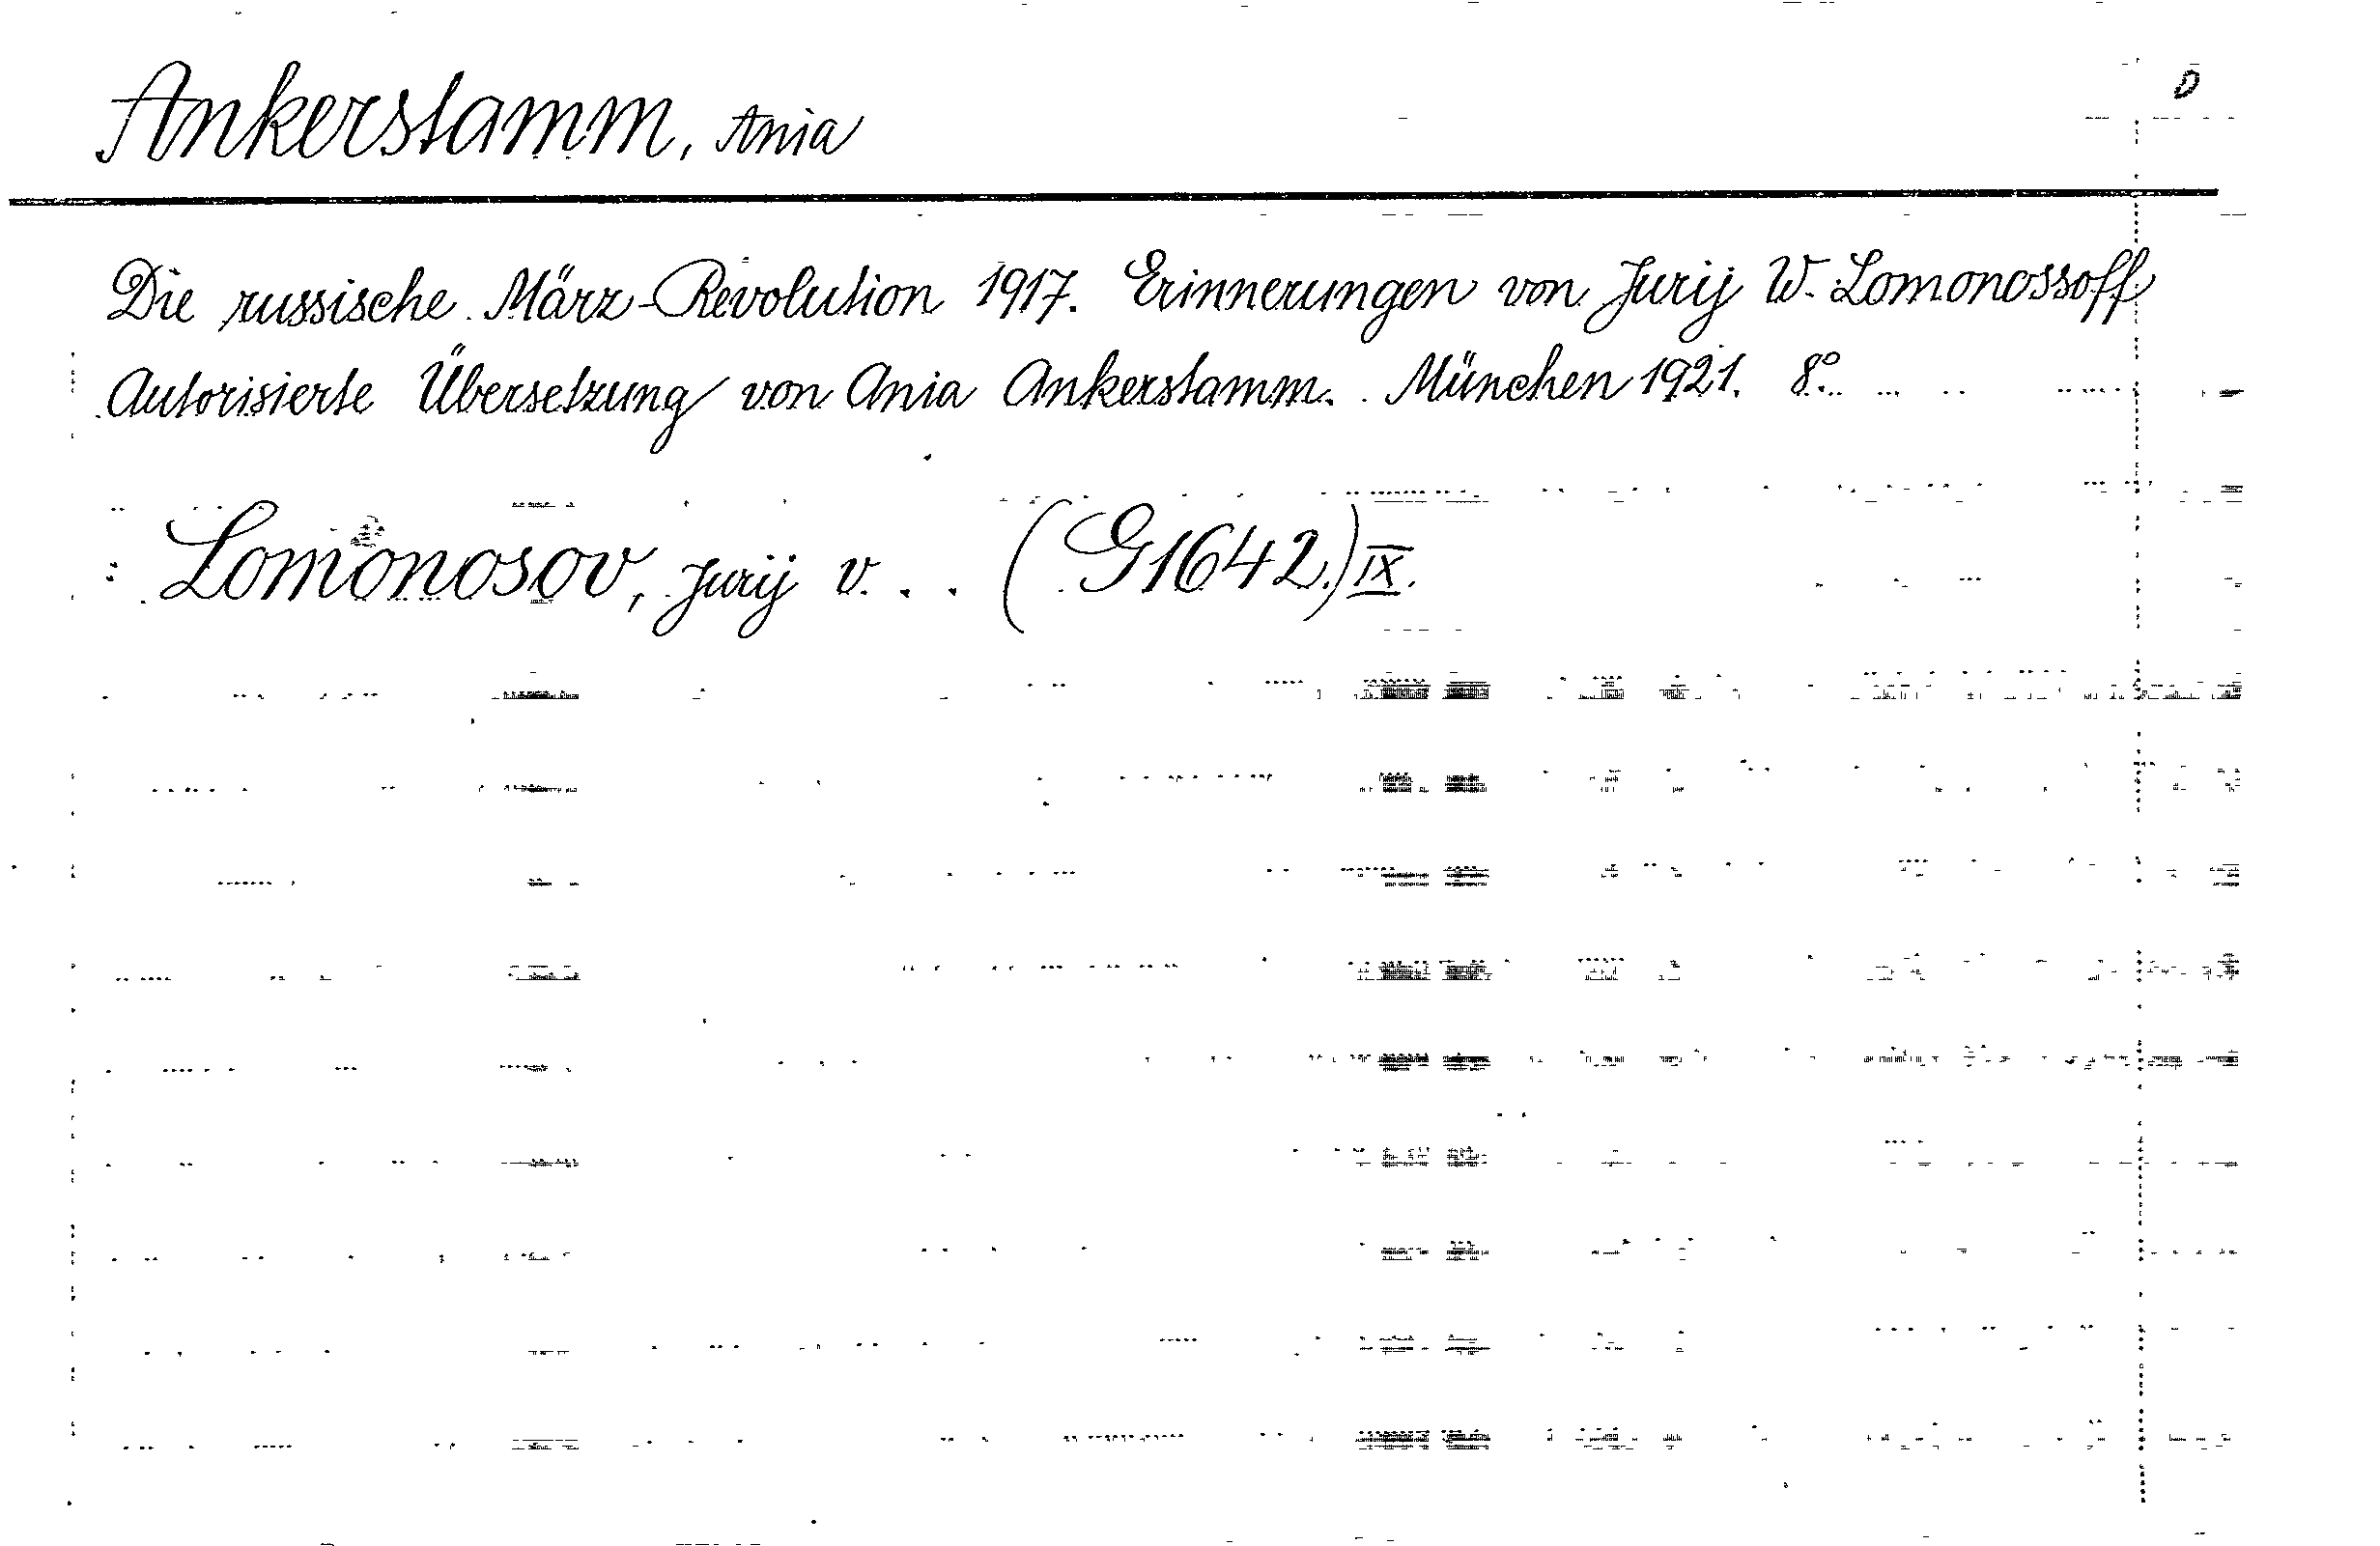 Ankerstamm, Ania
Die russische März-Revolution 1917. Erinnerungen von Jurij W. Lomonossoff
Autorisierte Übersetzung von Ania Ankerstamm. München 1921. 8°.
Lomonosov, Jurij v. . . (G1642.) IX.